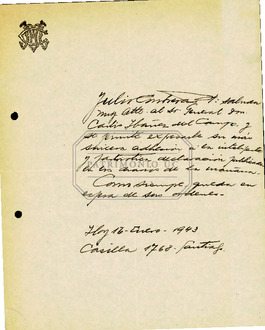 Julio Contreras P. saluda
muy Atte. al Sr. General don
Carlos Ibáñez del Campo, y
se permite expresarle su más
sincera adhesión a su inteligente
y patriótica declaración publicada
en los diarios de la mañana.
Como siempre, queda en
espera de sus órdenes.
Hoy 16-Enero-1943
Casilla 1768-Santiago
PATRIMONIO